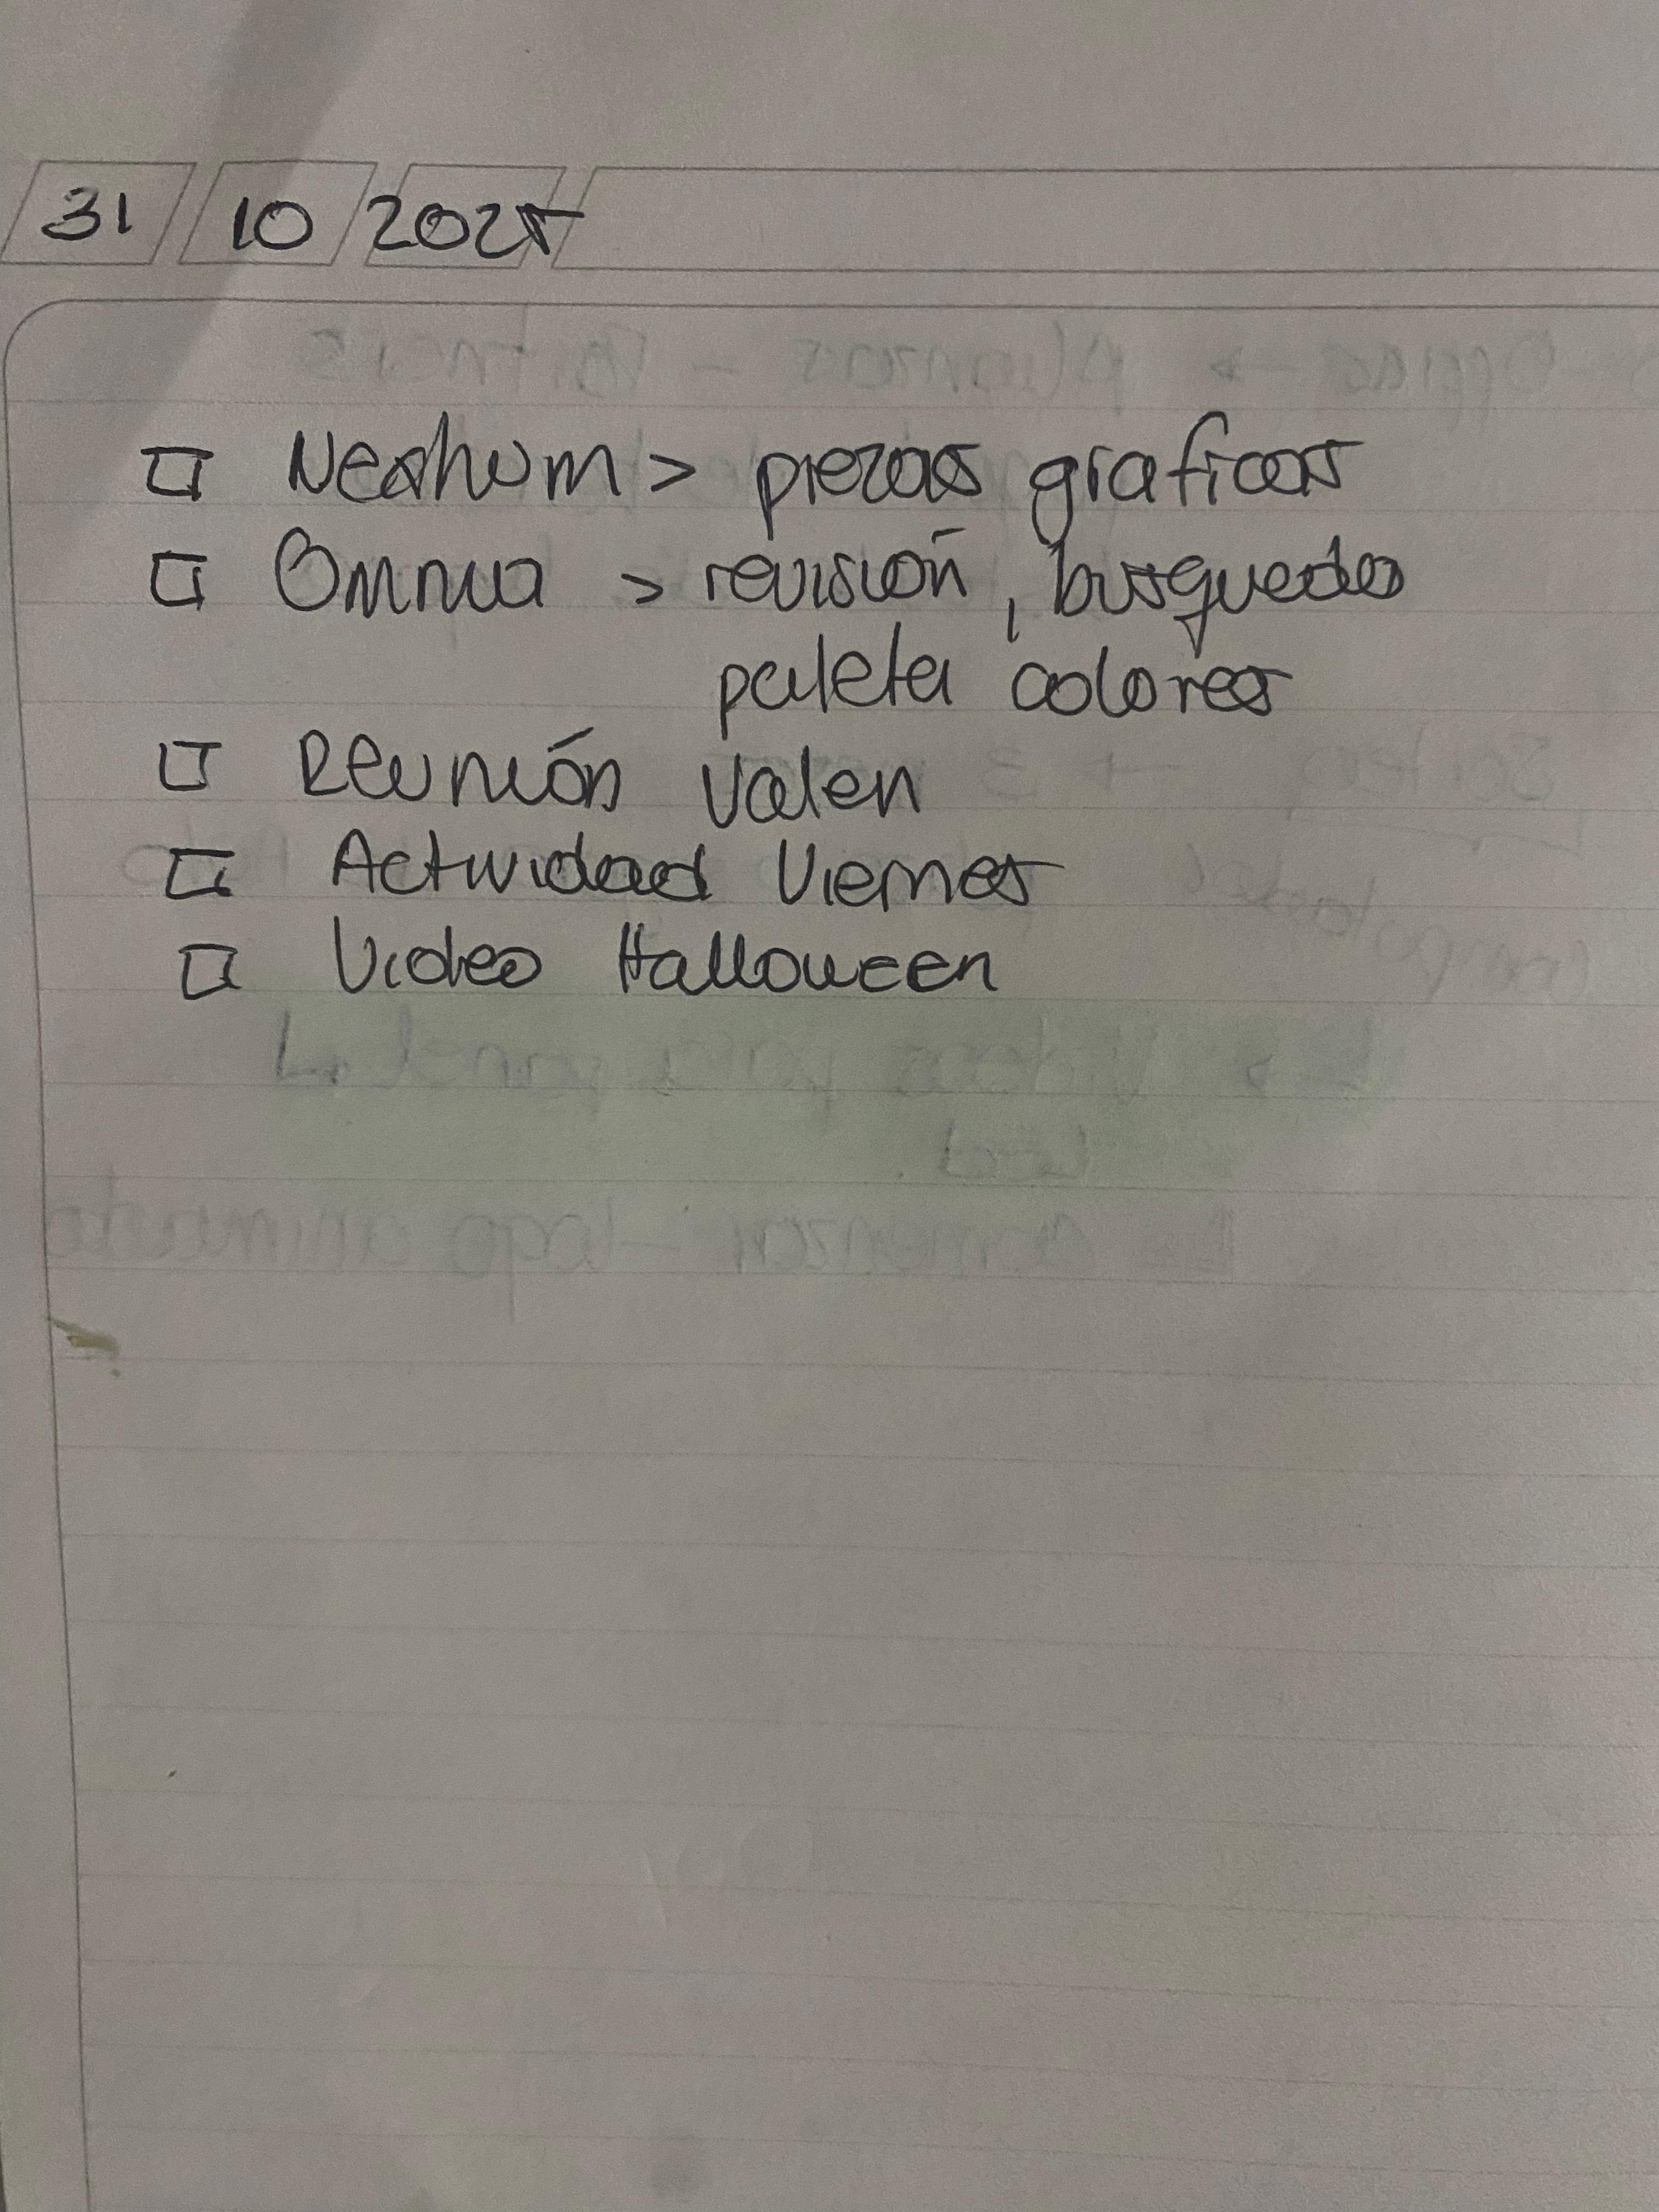 31 10 2025
Neshum > piezas graficas
Omnia > revisión, busqueda
paleta colores
Reunión Valen
Actividad Viernes
Video Halloween